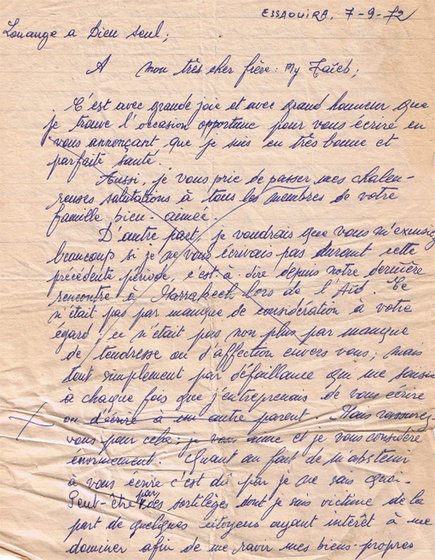 ESSAOUIRA, 7-9-72
Louange à Dieu seul;
A mon très cher frère: My Taïeb;
C'est avec grande joie et avec grand honneur que
je trouve l'occasion opportune pour vous écrire en
vous annonçant que je suis en très bonne et
parfaite santé.
Aussi, je vous prie de passer mes chaleu-
reuses salutations à tous les membres de votre
famille bien-aimée.
D'autre part, je voudrais que vous m'excusiez
beaucoup si je ne vous écrivais pas durant cette
précédente période, c'est-à-dire depuis notre dernière
rencontre à Marrakech lors de l'Aïd. Ce
n'était pas par manque de considération à votre
égard; ce n'était pas non plus par manque
de tendresse ou d'affection envers vous; mais
tout simplement par défaillance qui me
à chaque fois que j'entreprenais de vous écrire
ou d'écrire à un autre parent. Vous rassurez
vous pour cela; je vous aime et je vous considère
énormément. Quant au fait de m'abstenir
à vous écrire c'est dû par je ne sais quoi.
Peut-être par des sortilèges dont je suis victime de la
part de quelques citoyens ayant intérêt à me
dominer afin de me ravir mes biens propres